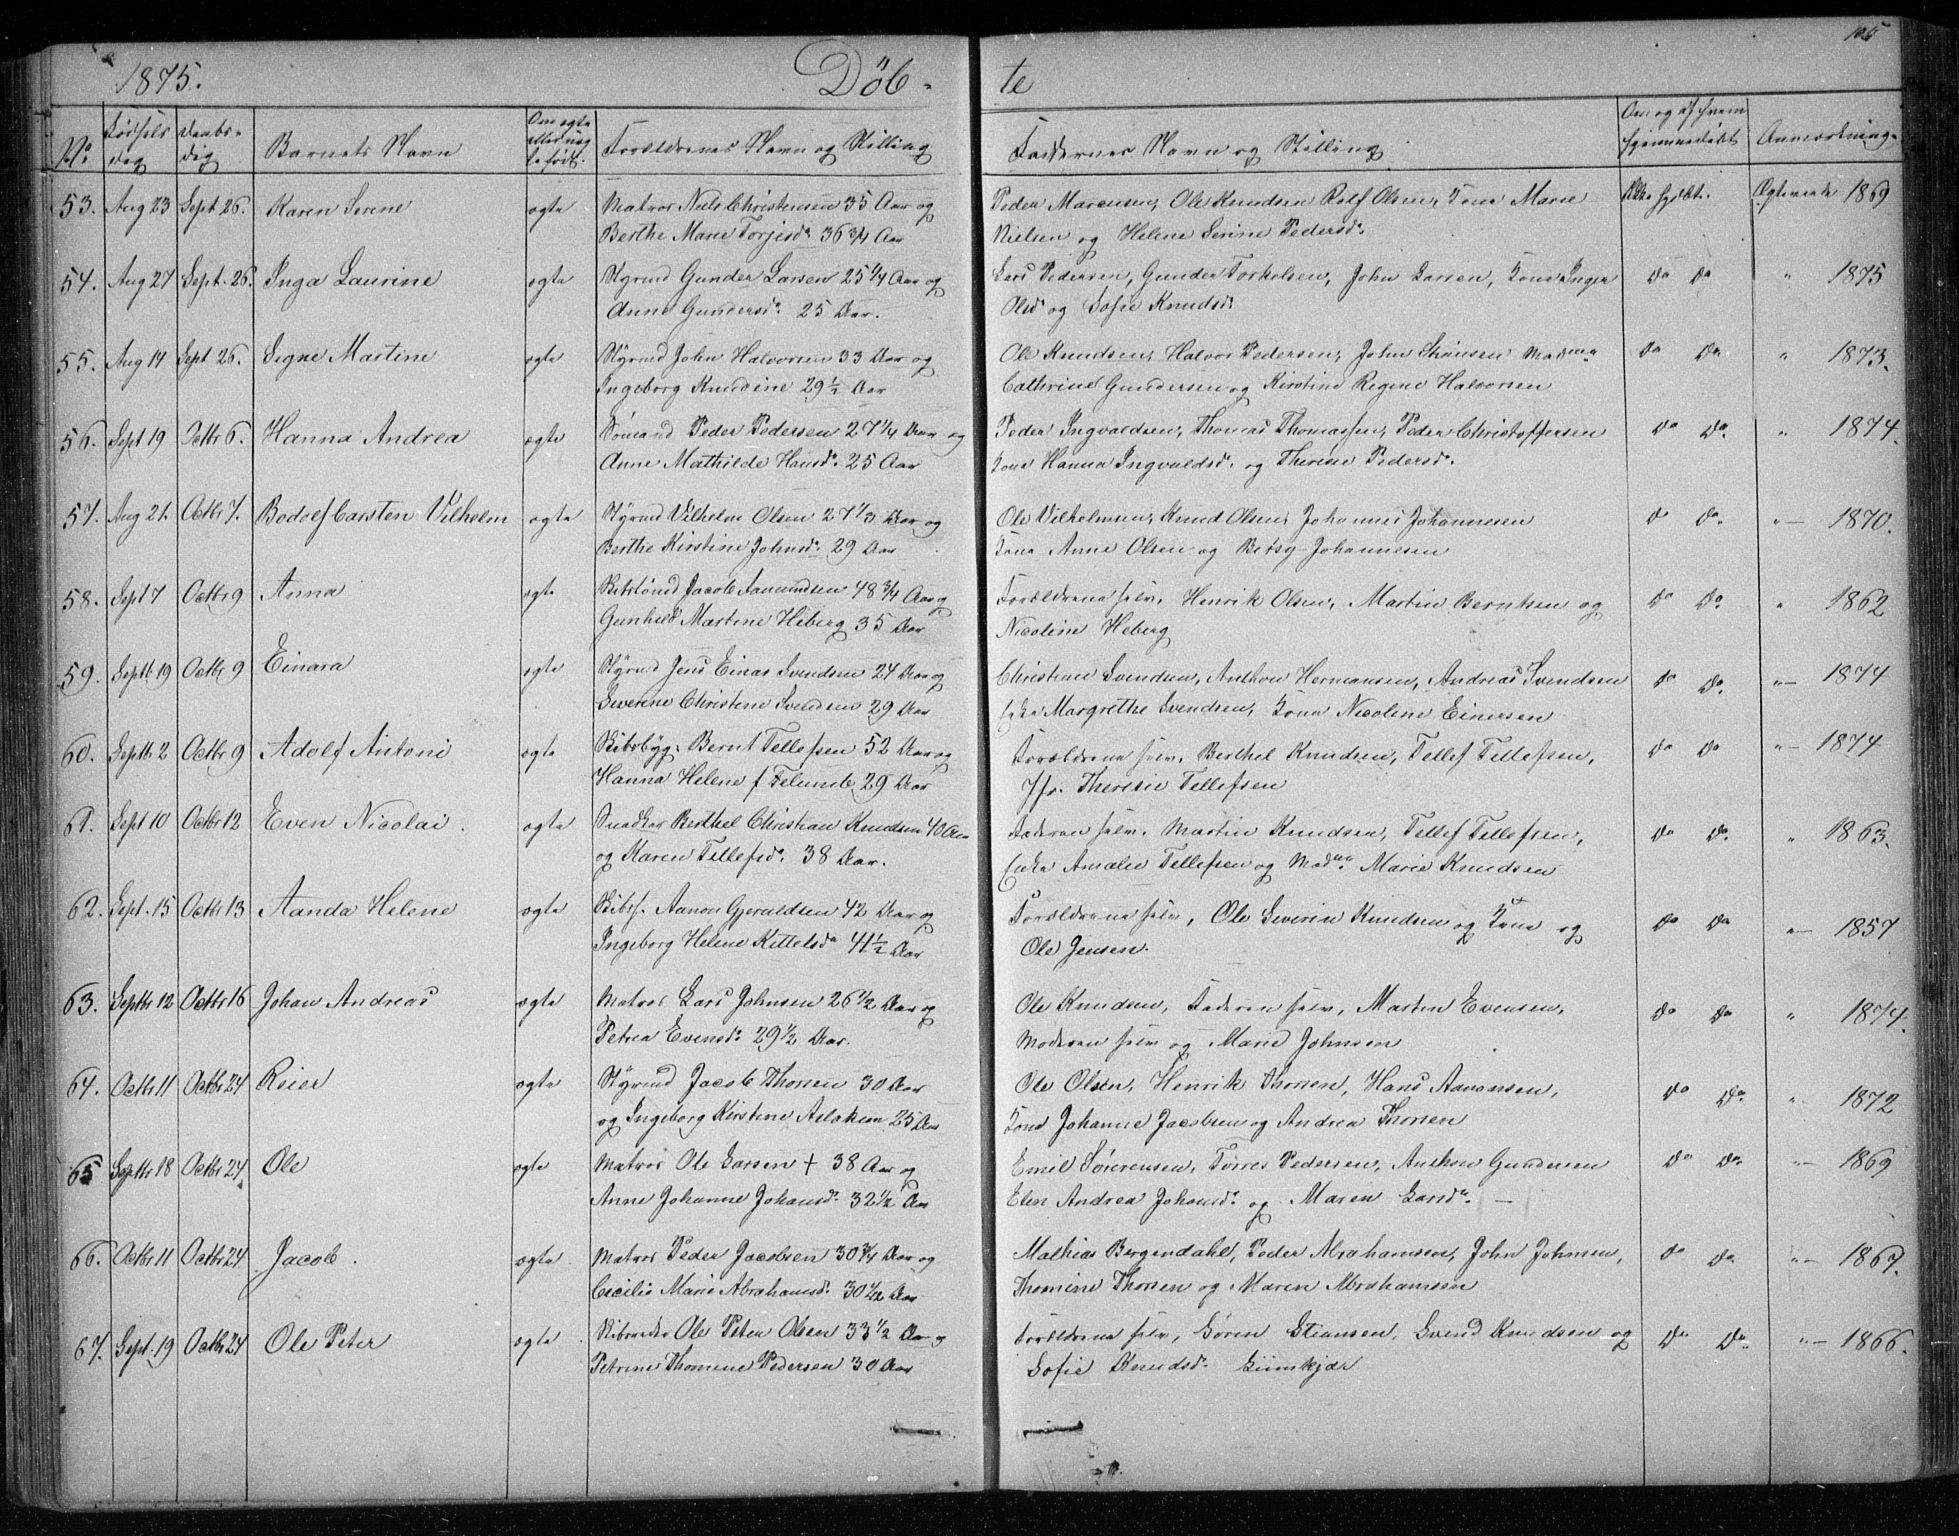 105
1875. Döb- te
No. Födsels dag Daabs- dig Barnets Navn Om ægte eller uæg te født. Forældrenes Navn og Stilling Faddernes Navn og Stilling Om og af hvem hjemmedöbt Anmærkning
53. Aug 23 Sept 26. Karen Serine ægte Matros Niels Christensen 35 Aar og Peder Marensen, Ole Knudsen Rolf Olsen, Kone Marie Ikke hjdbt. Ægteviede 1869
Berthe Marie Torjesdr 36 3/4 Aar Nielsen og Helene Serine Pedersdr.
54. Aug 27 Sept. 26. Inga Laurine ægte Styrmd Gunder Larsen 25 1/4 Aar og Lars Pedersen, Gunder Torkelsen, John Larsen, Kone Inger Do Do " 1875
Anne Gundersdr. 25 Aar. Olsdr og Sofie Knudsdr
55. Aug 14 Sept 26. Signe Martine ægte Styrmd John Halvorsen 33 Aar og Ole Knudsen, Halvor Pedersen, John Stiansen Madme Do Do. " 1873.
Ingeborg Knudine 29 1/2 Aar Cathrine Gundersen og Kirstine Regine Halvorsen
56. Sept 19 Octbr 6. Hanna Andrea ægte Sömand Peder Pedersen 27 1/4 Aar og Peder Ingvaldsen, Thomas Thomassen, Peder Christoffersen Do Do. " 1874.
Anne Mathilde Hansdr. 25 Aar Kone Hanna Ingvaldsdr. og Therese Pedersdr.
57. Aug 21. Octbr 7. Bodolf Carsten Vilhelm ægte Styrmd Vilhelm Olsen 27 1/3 Aar og Ole Vilhelmsen, Knud Olsen, Johannes Johannesen Do Do. " 1870.
Berthe Kirstine Johnsdr. 29 Aar Kone Anne Olsen og Johannesen
58. Sept 7 Octbr 9 Anna ægte Jacob Samundsen 48 3/4 Aar og Forældrene selv, Henrik Olsen, Martin Berntsen og Do Do. " 1862
Gunhild Martine Heberg 35 Aar Nicoline Heberg
59. Septb. 19 Octbr 9 Einara ægte Styrmd Jens Einar Svendsen 24 Aar og Christian Svendsen, Anthon Hermansen, Andreas Svendsen Do Do. " 1874
Severine Christine Svendsen 29 Aar Enke Margrethe Svendsen, Kone Nicoline Einersen
60. Septb 2 Octbr 9 Adolf Antoni ægte Skibsbyg. Bernt Tellefsen 52 Aar og Forældrene selv, Berthel Knudsen, Tellef Tellefsen, Do Do " 1874
Hanna Helene f. 29 Aar Jfr. Theresie Tellefsen
61. Sept 10 Octbr 12 Even Nicolai. ægte Snedker Berthel Christian Knudsen 40 Aar Faderen selv, Martin Knudsen, Tellef Tellefsen, Do Do. " 1863.
og Karen Tellefsdr. 38 Aar. Enke Amalie Tellefsen og Madme Marie Knudsen
62. Sept. 15 Octbr 13 Aanda Helene ægte Skibsf. Aanon Gjeruldsen 42 Aar og Forældrene selv, Ole Severin Knudsen og Kone og Do Do " 1857
Ingeborg Helene Kittelsdr 41 1/2 Aar Ole Jensen.
63. Septbr 12 Octbr 16 Johan Andreas ægte Matros Lars Johnsen 26 1/2 Aar og Ole Knudsen, Faderen selv, Martin Evensen, Do Do " 1874.
Petrea Evensdr. 29 1/2 Aar. Moderen selv og Marie Johnsen
64. Octbr 11 Octbr 24 Reier ægte Styrmd Jacob Thorsen 30 Aar Ole Olsen, Henrik Thorsen, Hans Aanonsen, Do Do. " 1872
og Ingeborg Kirstine Aslaksen 25 Aar Kone Johanne Jacobsen og Andrea Thorsen
65 Septbr 18 Octbr 24 Ole ægte Matros Ole Larsen + 38 Aar og Emil Sörensen, Törres Pedersen, Anthon Gundersen Do Do. " 1869
Anne Johanne Johansdr. 32 1/2 Aar Elen Andrea Johansdr. og Maren Larsdr. —
66. Octbr 11 Octbr 24 Jacob. ægte Matros Peder Jacobsen 30 3/4 Aar og Mathias Bergendahl, Peder Abrahamsen, John Johnsen, Do Do. " 1867.
Cecilie Marie Abrahamsdr. 30 1/2 Aar Thomine Thorsen og Maren Abrahamsen
67. Sept. 19 Octbr 24 Ole Peter ægte Ole Peter Olsen 33 1/2 Aar og Forældrene selv, Sören Stiansen, Svend Knudsen og Do Do. " 1866.
Petrine Thomine Pedersen 30 Aar Sofie Knudsdr.